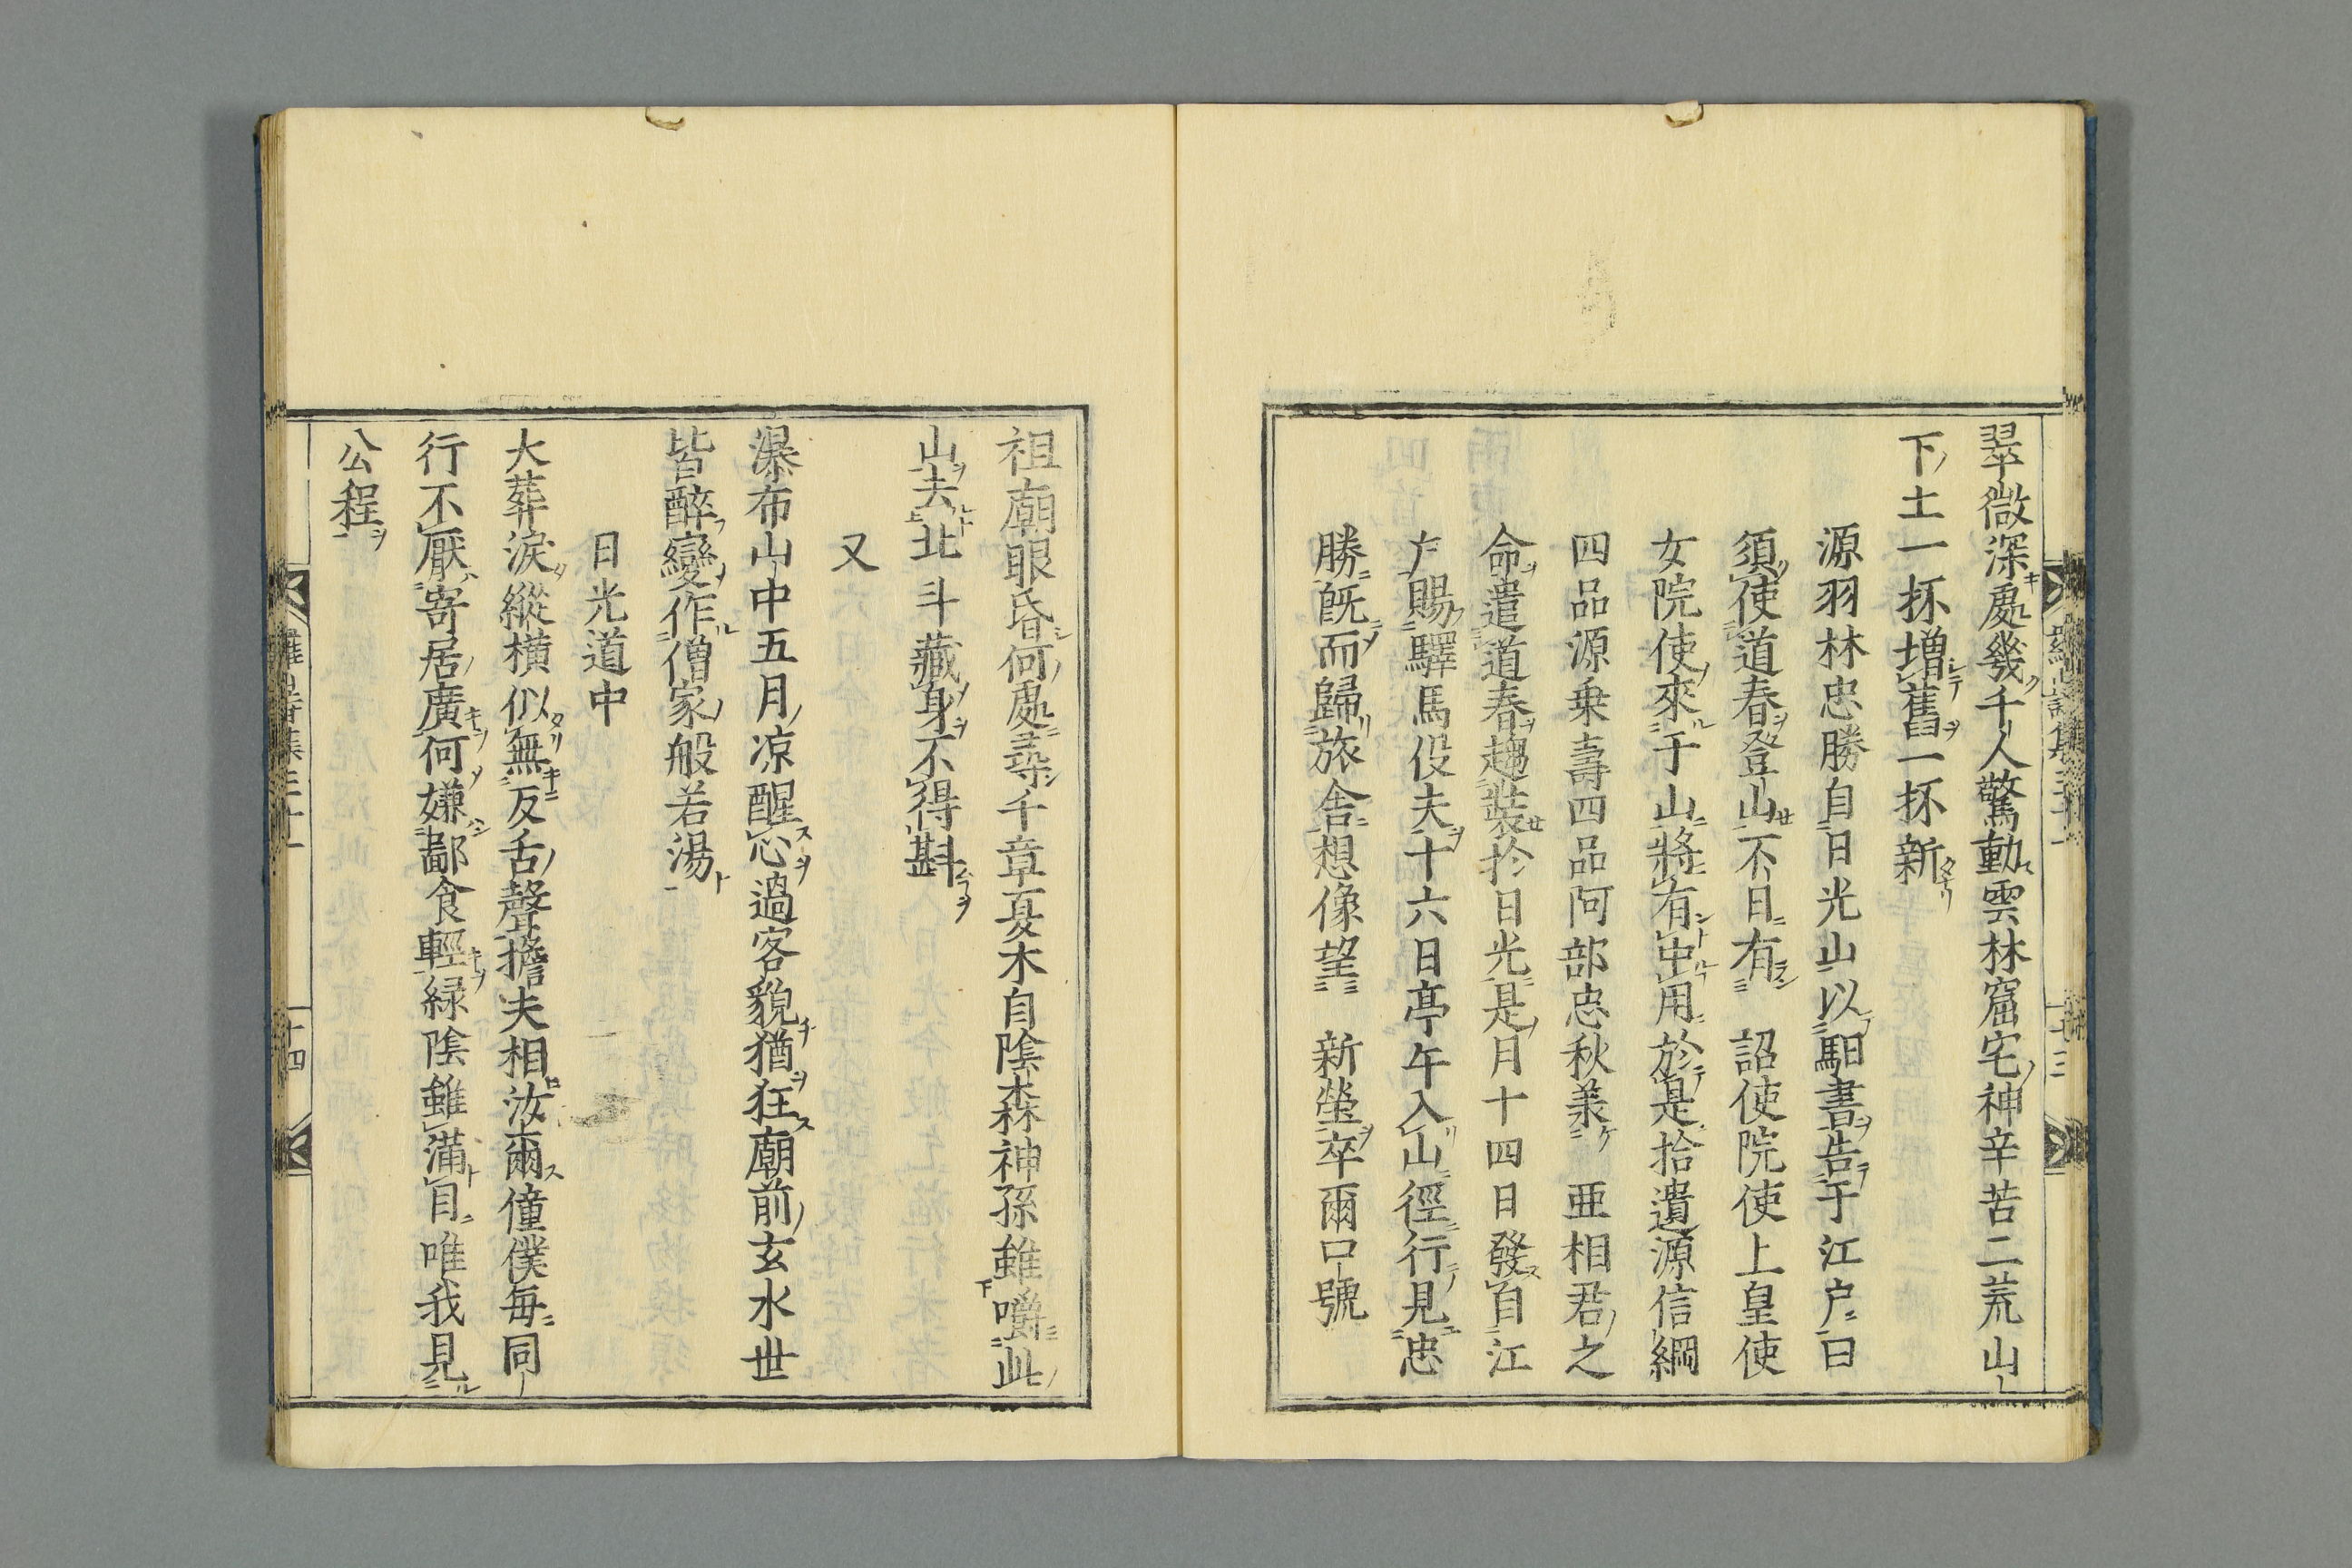 翠微深處幾千人驚動雲林窟宅神辛苦二荒山
下土一抔增舊一抔新
源羽林忠勝自日光山以馹書告于江戸曰
須使道春登山不日有　詔使院使上皇使
女院使來于山將有虫用於是拾遺源信綱
四品源乗壽四品阿部忠秋羕　亜相君之
命遣道春趣裝於日光是月十四日發自江
戸賜驛馬役夫十六日亭午入山徑行見忠
勝既而歸旅舎想像望　新瑩卒爾口號
祖廟眼昏何處尋千章夏木自陰森神孫雖嚼此
山去北斗藏身不得斟
又
瀑布山中五月凉醒心過客貌猶狂廟前玄水世
皆醉變作僧家般若湯
日光道中
大葬淚縱横似無反舌聲擔夫相汝爾僮僕毎同
行不厭寄居廣何嫌鄙食輕緑陰雖滿目唯我見
公程
十四